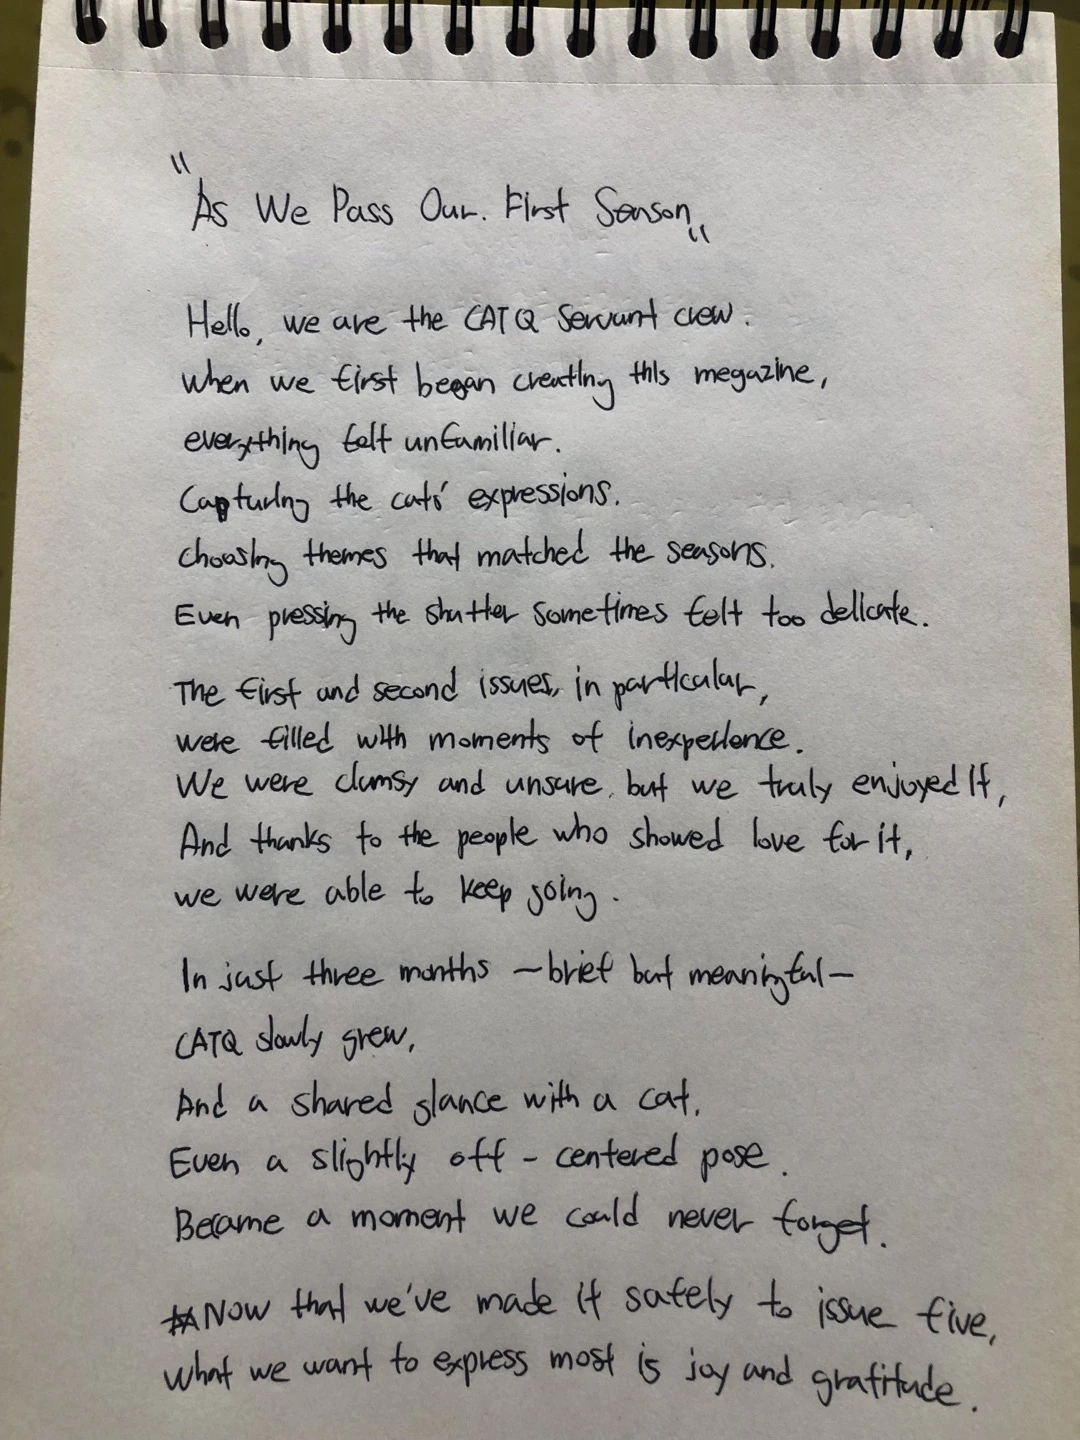 "As We Pass Our. First Season"
Hello, we are the CATQ Servant crew.
When we first began creating this megazine,
everything felt unfamiliar.
Capturing the cats' expressions.
choosing themes that matched the seasons.
Even pressing the shutter sometimes felt too delicate.
The first and second issues, in particular,
were filled with moments of inexperience.
We were clumsy and unsure. but we truly enjoyed it,
And thanks to the people who showed love for it,
we were able to keep going.
In just three months —brief but meaningful—
CATQ slowly grew,
And a shared glance with a cat.
Even a slightly off-centered pose.
Became a moment we could never forget.
Now that we've made it safely to issue five,
what we want to express most is joy and gratitude.